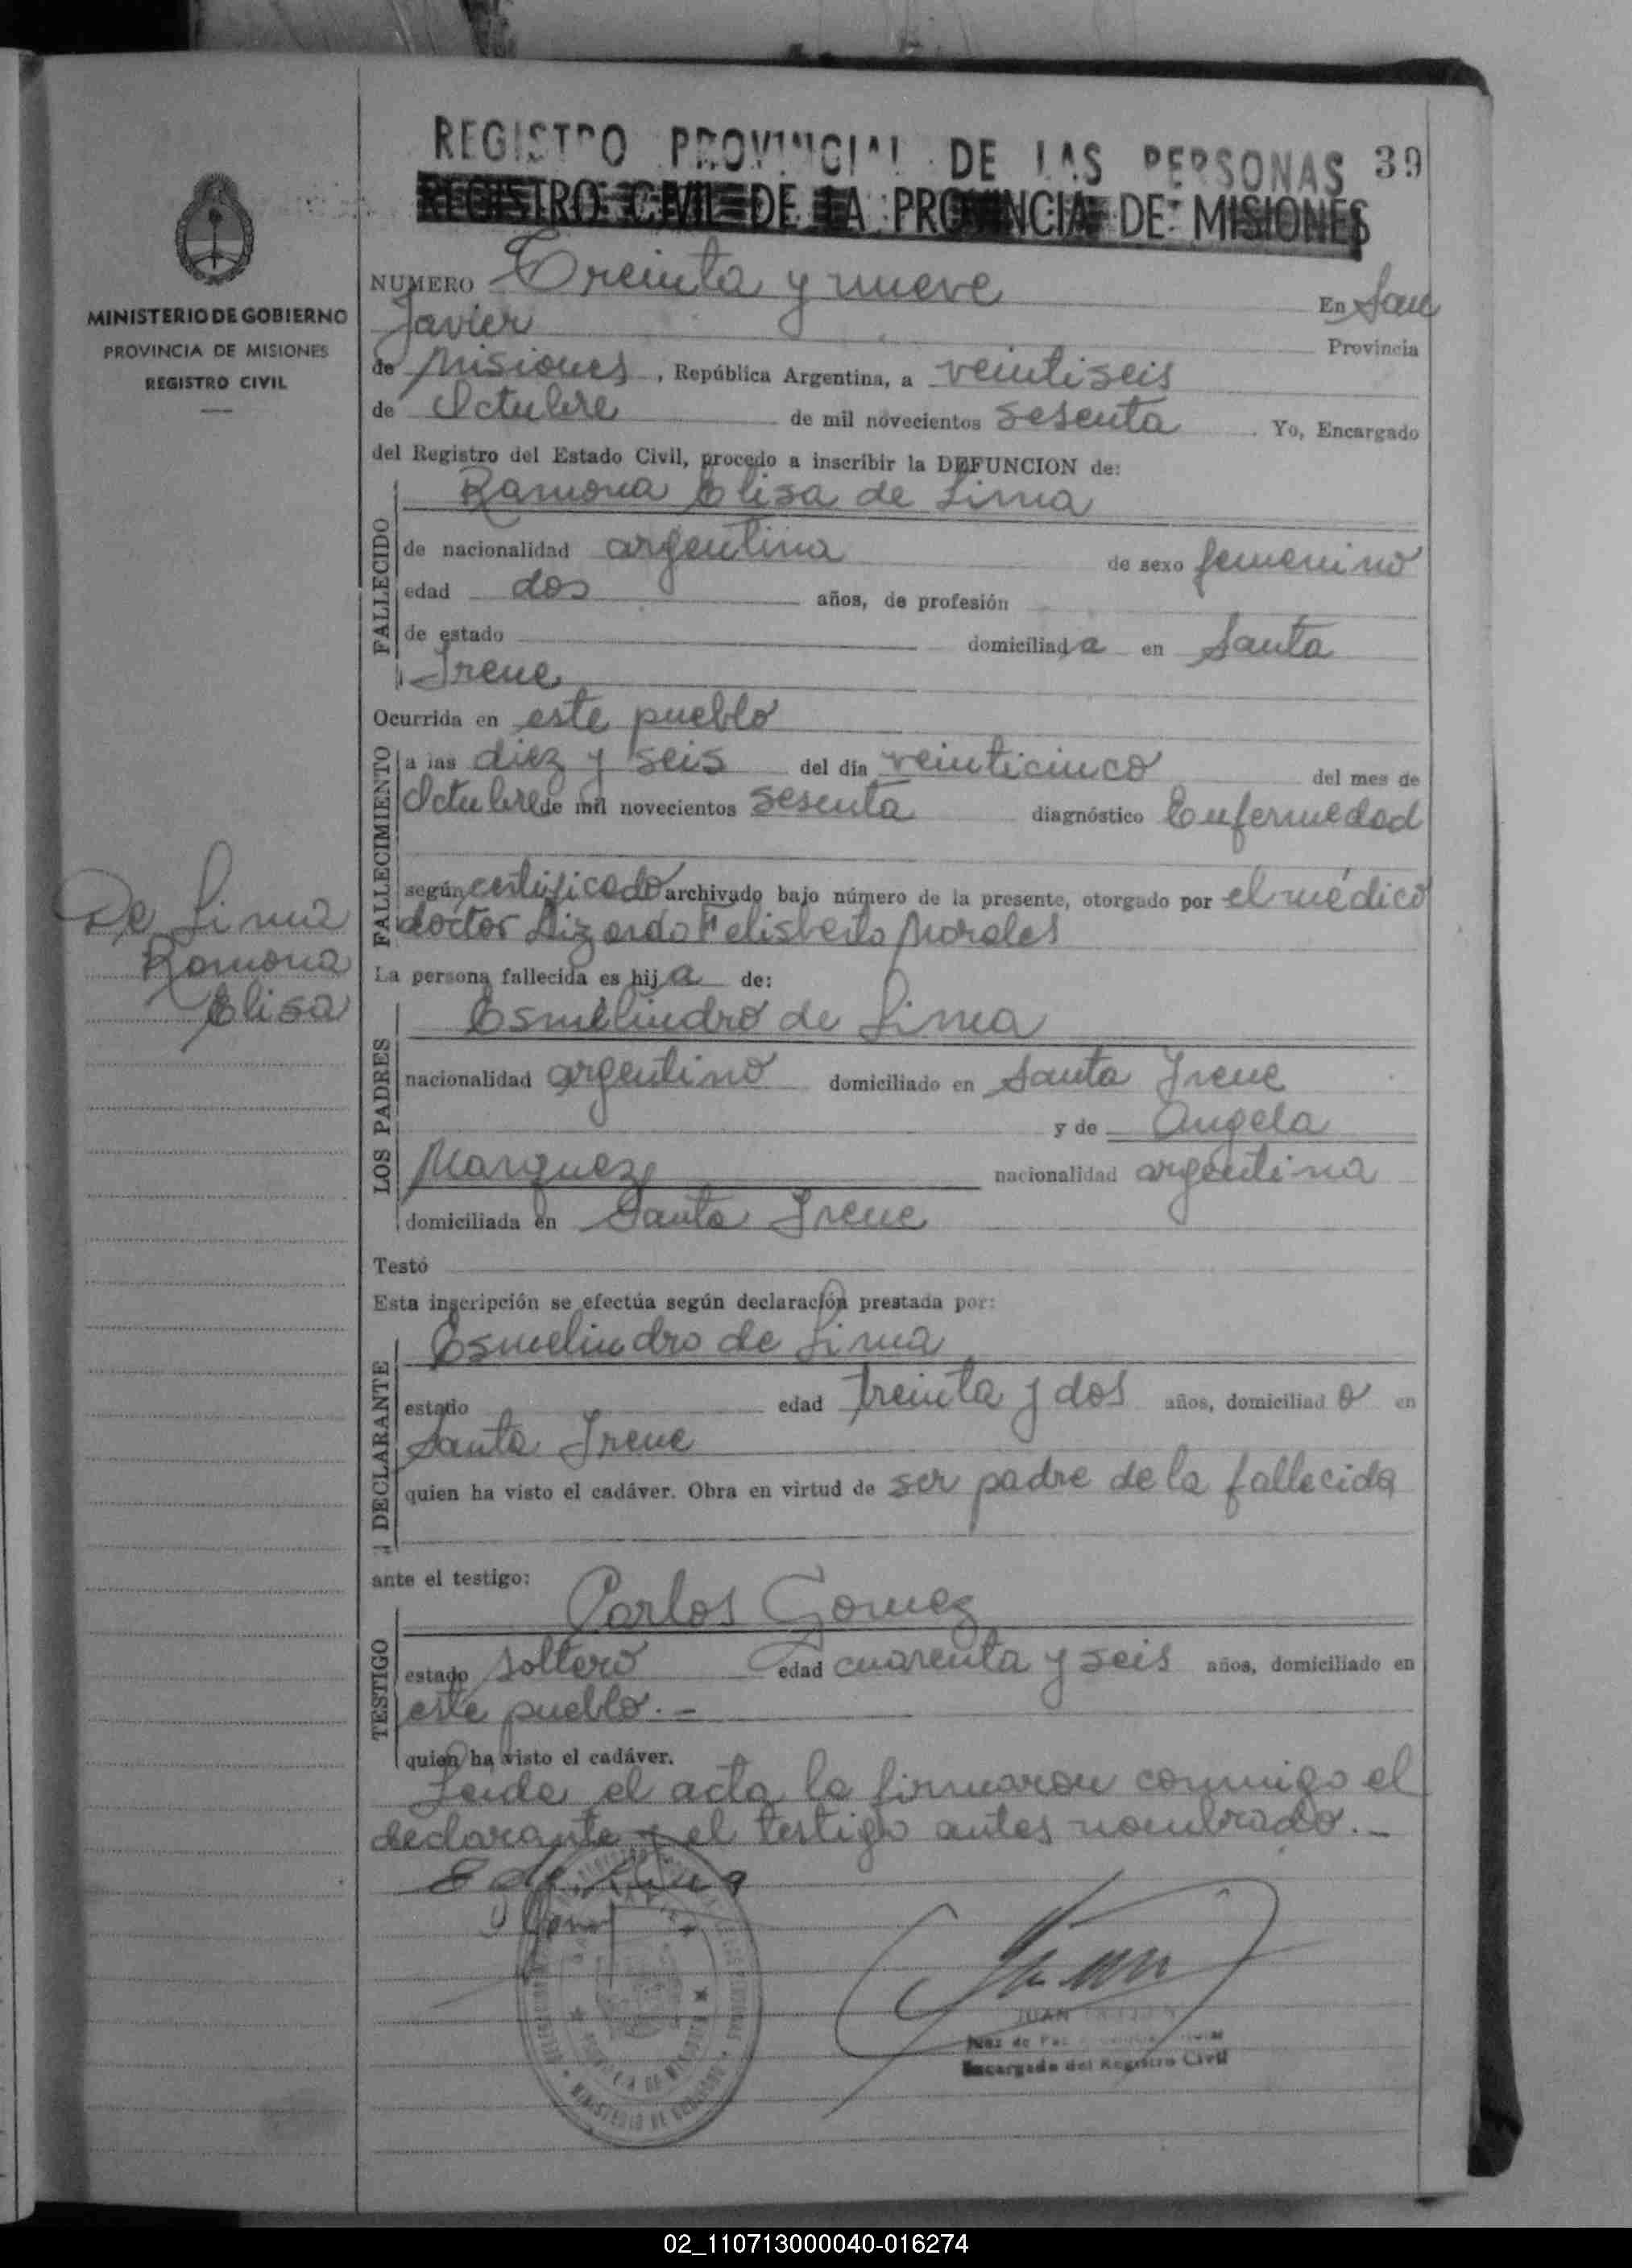 REGISTRO PROVINCIAL DE LAS PERSONAS 39
REGISTRO CIVIL DE LA PROVINCIA DE MISIONES
MINISTERIO DE GOBIERNO
PROVINCIA DE MISIONES
REGISTRO CIVIL
NUMERO Treinta y nueve En San
Javier Provincia
de Misiones, República Argentina, a veintiseis
de Octubre de mil novecientos sesenta. Yo, Encargado
del Registro del Estado Civil, procedo a inscribir la DEFUNCION de:
Ramona Elisa de Lima
FALLECIDO
de nacionalidad argentina de sexo femenino
edad dos años, de profesión
de estado domiciliada en Santa
Irene
Ocurrida en este pueblo
FALLECIMIENTO
a las diez y seis del día veinticinco del mes de
Octubre de mil novecientos sesenta diagnóstico Enfermedad
según certificado archivado bajo número de la presente, otorgado por el médico
doctor Lizardo Felisberto Morales
De Lima
Ramona
Elisa
La persona fallecida es hija de:
LOS PADRES
Esmelindro de Lima
nacionalidad argentino domiciliado en Santa Irene
y de Angela
Marquez nacionalidad argentina
domiciliada en Santa Irene
Testó
Esta inscripción se efectúa según declaración prestada por:
DECLARANTE
Esmelindro de Lima
estado edad treinta y dos años, domiciliado en
Santa Irene
quien ha visto el cadáver. Obra en virtud de ser padre de la fallecida
ante el testigo:
TESTIGO
Carlos Gomez
estado soltero edad cuarenta y seis años, domiciliado en
este pueblo.-
quien ha visto el cadáver.
Leida el acta la firmaron conmigo el
declarante y el testigo antes nombrado.-
E de Lima
JUAN
Juez de Paz
Encargado del Registro Civil
MINISTERIO DE GOBIERNO
02_110713000040-016274